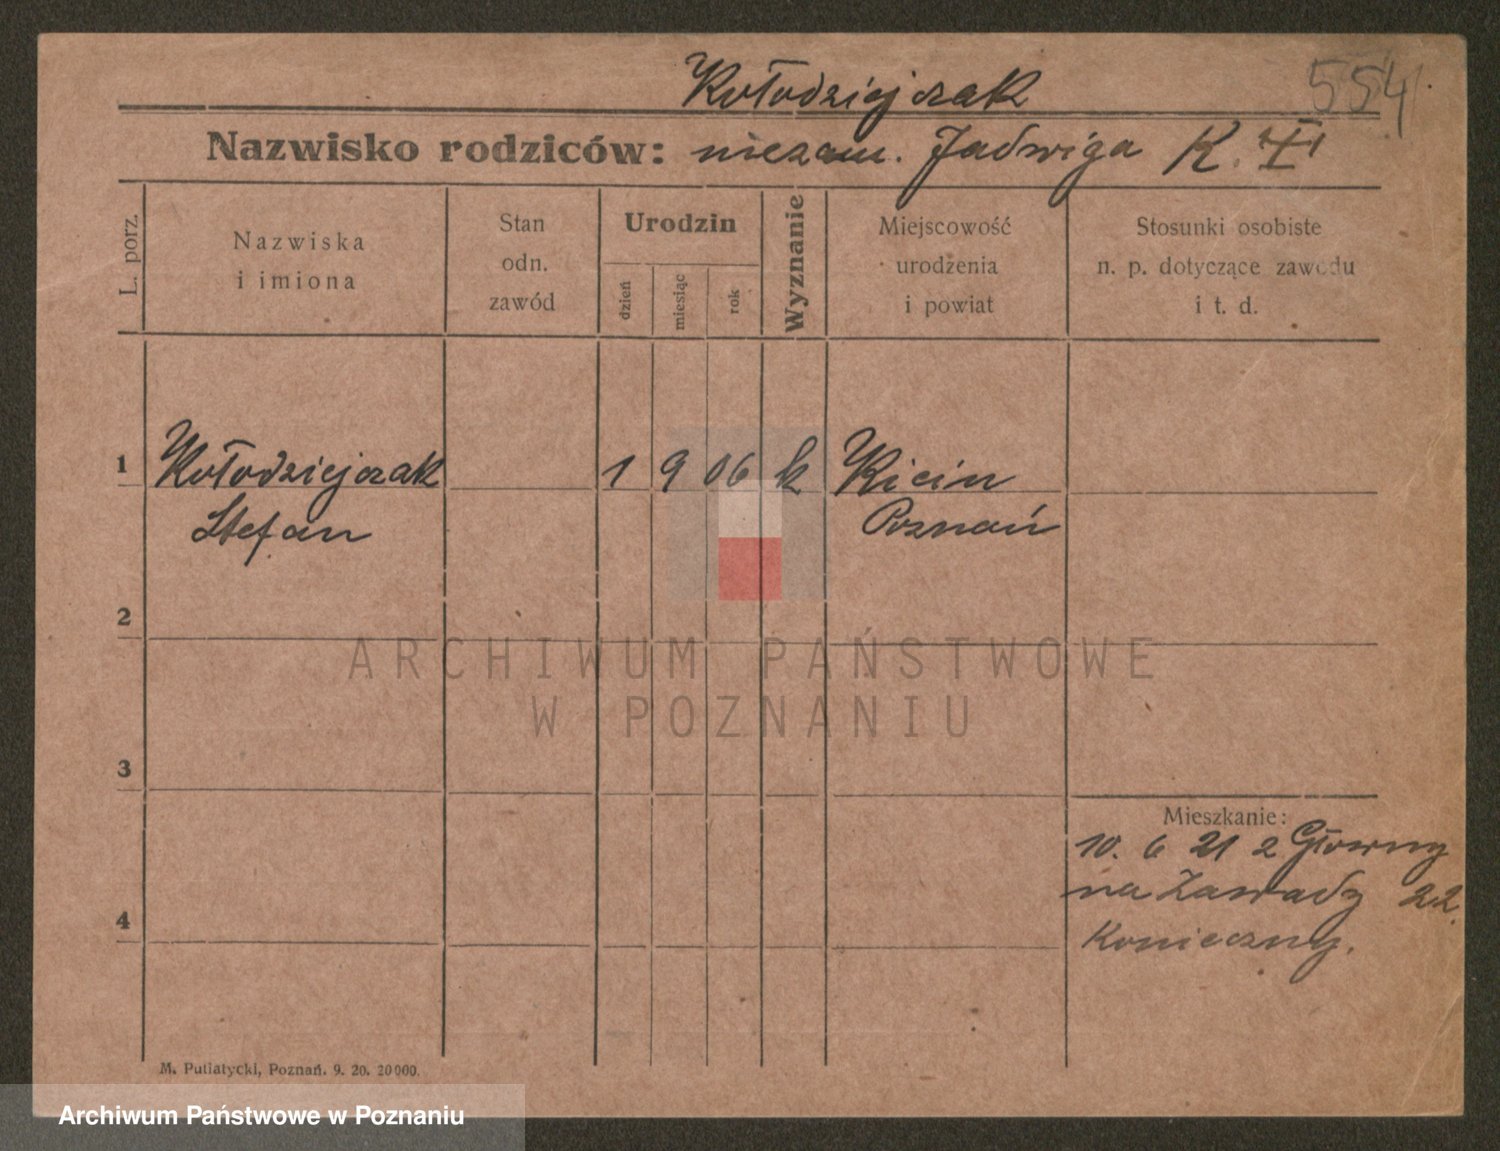 Kołodziejczak
554
Nazwisko rodziców: niezam. Jadwiga K.
L. porz.
Nazwiska
i imiona
Stan
odn.
zawód
Urodzin
dzień
miesiąc
rok
Wyznanie
Miejscowość
urodzenia
i powiat
Stosunki osobiste
n. p. dotyczące zawodu
i t. d.
1 Kołodziejczak 1 9 06 k Kicin
Stefan Poznań
2
ARCHIWUM PAŃSTWOWE
W POZNANIU
3
Mieszkanie:
10. 6 21 z Głowny
na Zawady 22.
Konieczny.
4
M. Putiatycki, Poznań. 9. 20. 20000.
Archiwum Państwowe w Poznaniu